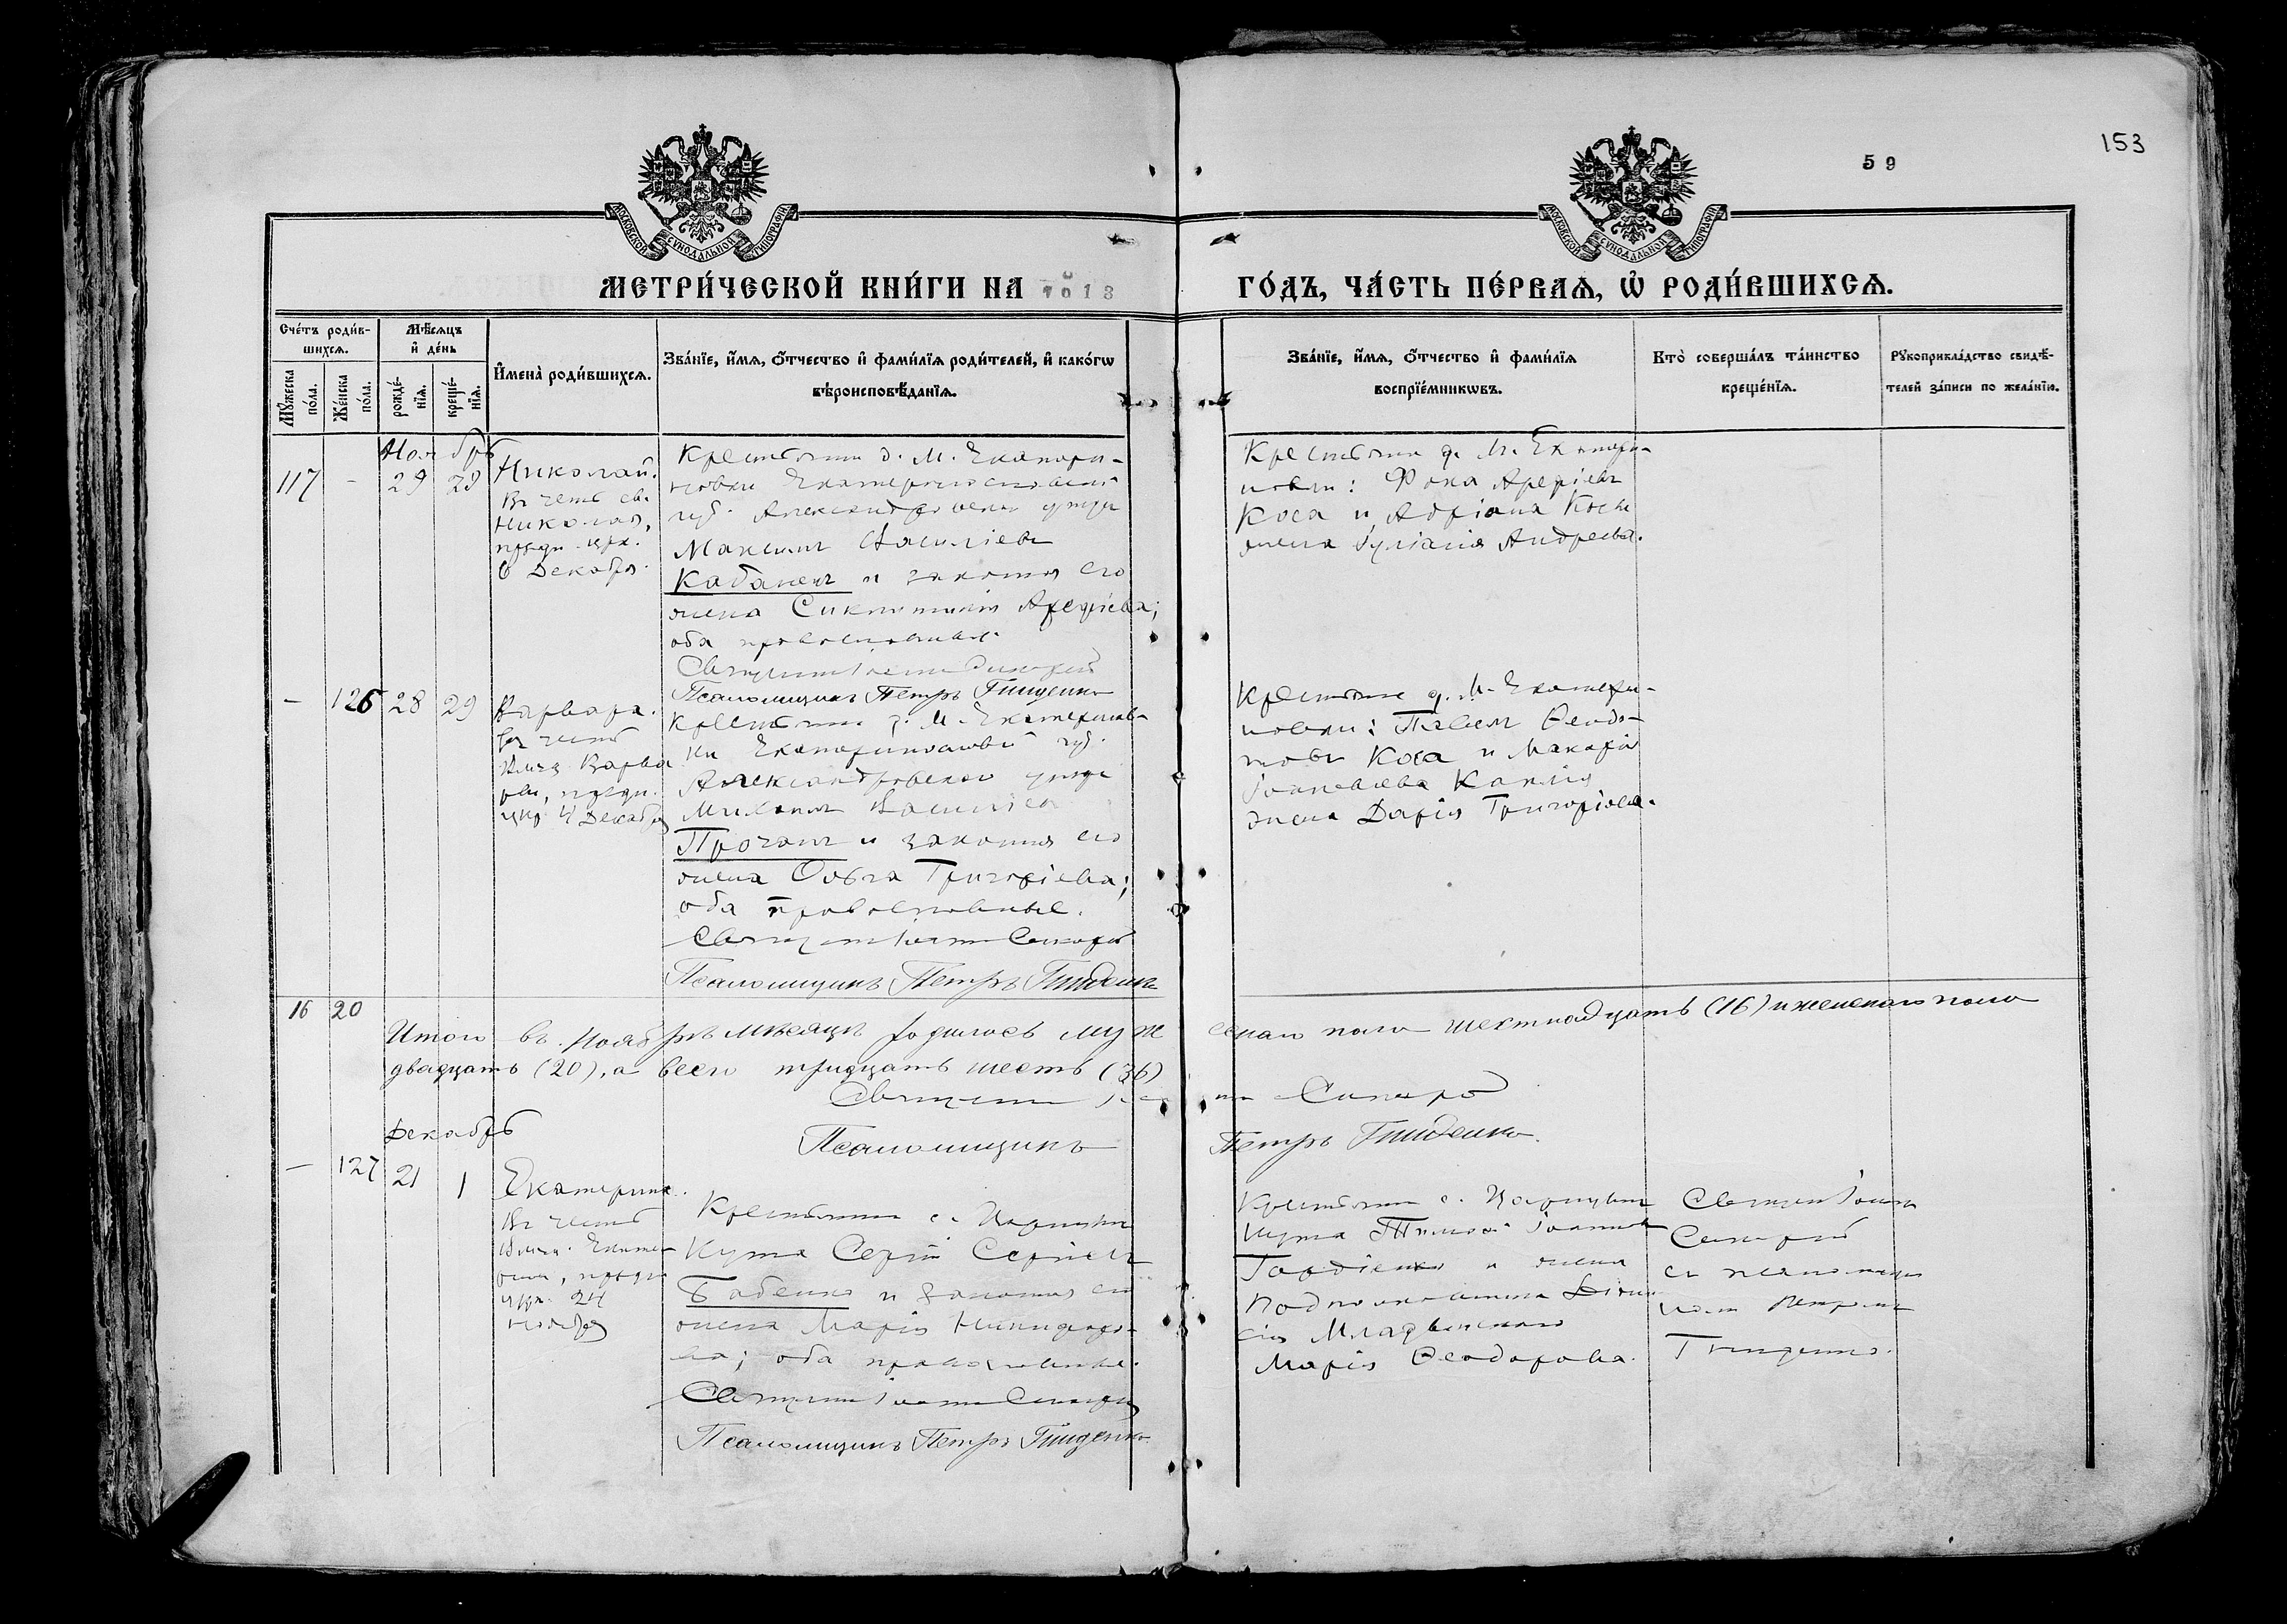 153
59
МОСКОВСКОЙ СѴНОДАЛЬНОЙ ТИПОГРАФІИ
МОСКОВСКОЙ СѴНОДАЛЬНОЙ ТИПОГРАФІИ
МЕТРИ́ЧЕСКОЙ КНИ́ГИ НА
ГО́ДЪ, ЧА́СТЬ ПЕ́РВАѦ, Ѡ҆ РОДИ́ВШИХСѦ.
Сче́тъ роди́в-
шихсѧ.
Мꙋ́жеска по́ла.
Же́нска по́ла.
Мѣ́сѧцъ
и҆ де́нь
рожде́-
нїѧ.
креще́-
нїѧ.
И҆мена̀ роди́вшихсѧ.
Зва́нїе, и҆́мѧ, ѻ҆́тчество и҆ фами́лїѧ роди́телей, и҆ како́гѡ
вѣроисповѣ́данїѧ.
Зва́нїе, и҆́мѧ, ѻ҆́тчество и҆ фами́лїѧ
воспрїе́мникѡвъ.
Кто̀ соверша́лъ та́инство
креще́нїѧ.
Рꙋкоприкла́дство свидѣ́-
телей за́писи по жела́нїю.
Ноябрь
117 - 29 29
Николай.
Въ честь св.
Николая,
празд. црк.
6 Декабря.
Крестьянин д. М. Екатери-
новки Екатеринославской
губ. Александровскаго уезда
Максимъ Василіевъ
Кабанецъ и законная его
жена Арефіева;
оба православные.
Псаломщикъ Петръ
Крестьяне д. М. Екатери-
новки: Фока Арефіевъ
Коса и Адріана Косы
жена Іуліанія Андреева.
- 126 28 29
Варвара.
Въ честь
Влмц. Варва
ры, празд.
црк. 4 Декабря
Крестьянин д. М. Екатеринов-
ки Екатеринославской губ.
Александровскаго уезда
Михаилъ Василіевъ
Прочанъ и законная его
жена Ольга Григоріева;
оба православные.
Псаломщикъ Петръ
Крестьяне д. М. Екатери-
новки: Павелъ Ѳеодо-
товъ Коса и Макарія
жена Дарія Григоріева.
16 20
Итого въ Ноябрѣ мѣсяцѣ родилось муж
ескаго пола шестнадцать (16) и женскаго пола
двадцать (20), а всего тридцать шесть (36)
Псаломщикъ
Петръ
Декабрь
- 127 21 1
Екатерина.
Въ честь
Влмч. Екате-
рины, празд.
црк. 24
Ноября
Крестьянин с. Царицына
Кута Сергій Сергіевъ
Бабенко и законная его
жена Марія Никифоро-
ва; оба православные.
Псаломщикъ Петръ
Крестьянин с. Царицына
Кута
Гордіенко и жена
Подполковника
Марія Ѳеодорова.
съ псаломщи
комъ Петромъ